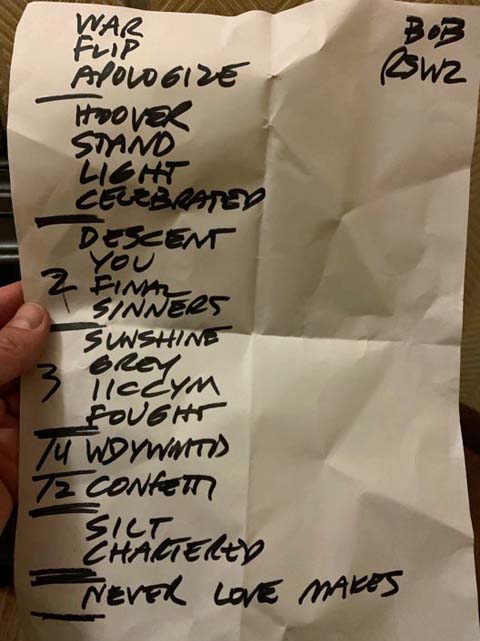 WAR
FLIP
APOLOGIZE
BOB
RSW2
HOOVER
STAND
LIGHT
CELEBRATED
DESCENT
YOU
2 FINAL
SINNERS
SUNSHINE
GREY
3 IICCYM
FOUGHT
/4 WDYWMTD
/2 CONFETTI
SILT
CHARTERED
NEVER LOVE MAKES